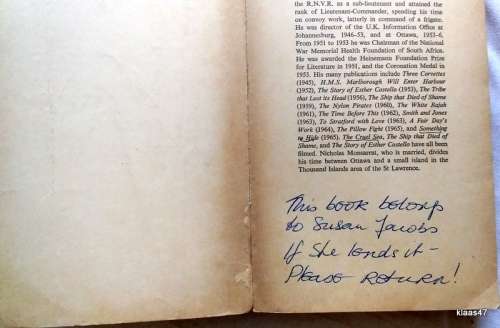 the R.N.V.R. as a sub-lieutenant and attained the
rank of Lieutenant-Commander, spending his time
on convoy work, latterly in command of a frigate.
He was director of the U.K. Information Office at
Johannesburg, 1946–53, and at Ottawa, 1953–6.
From 1951 to 1953 he was Chairman of the National
War Memorial Health Foundation of South Africa.
He was awarded the Heinemann Foundation Prize
for Literature in 1951, and the Coronation Medal in
1953. His many publications include Three Corvettes
(1945), H.M.S. Marlborough Will Enter Harbour
(1952), The Story of Esther Costello (1953), The Tribe
that Lost its Head (1956), The Ship that Died of Shame
(1959), The Nylon Pirates (1960), The White Rajah
(1961), The Time Before This (1962), Smith and Jones
(1963), To Stratford with Love (1963), A Fair Day's
Work (1964), The Pillow Fight (1965), and Something
to Hide (1965). The Cruel Sea, The Ship that Died of
Shame, and The Story of Esther Costello have all been
filmed. Nicholas Monsarrat, who is married, divides
his time between Ottawa and a small island in the
Thousand Islands area of the St Lawrence.
This book belongs
to Susan Jacobs
If she lends it –
Please return!
klaas47